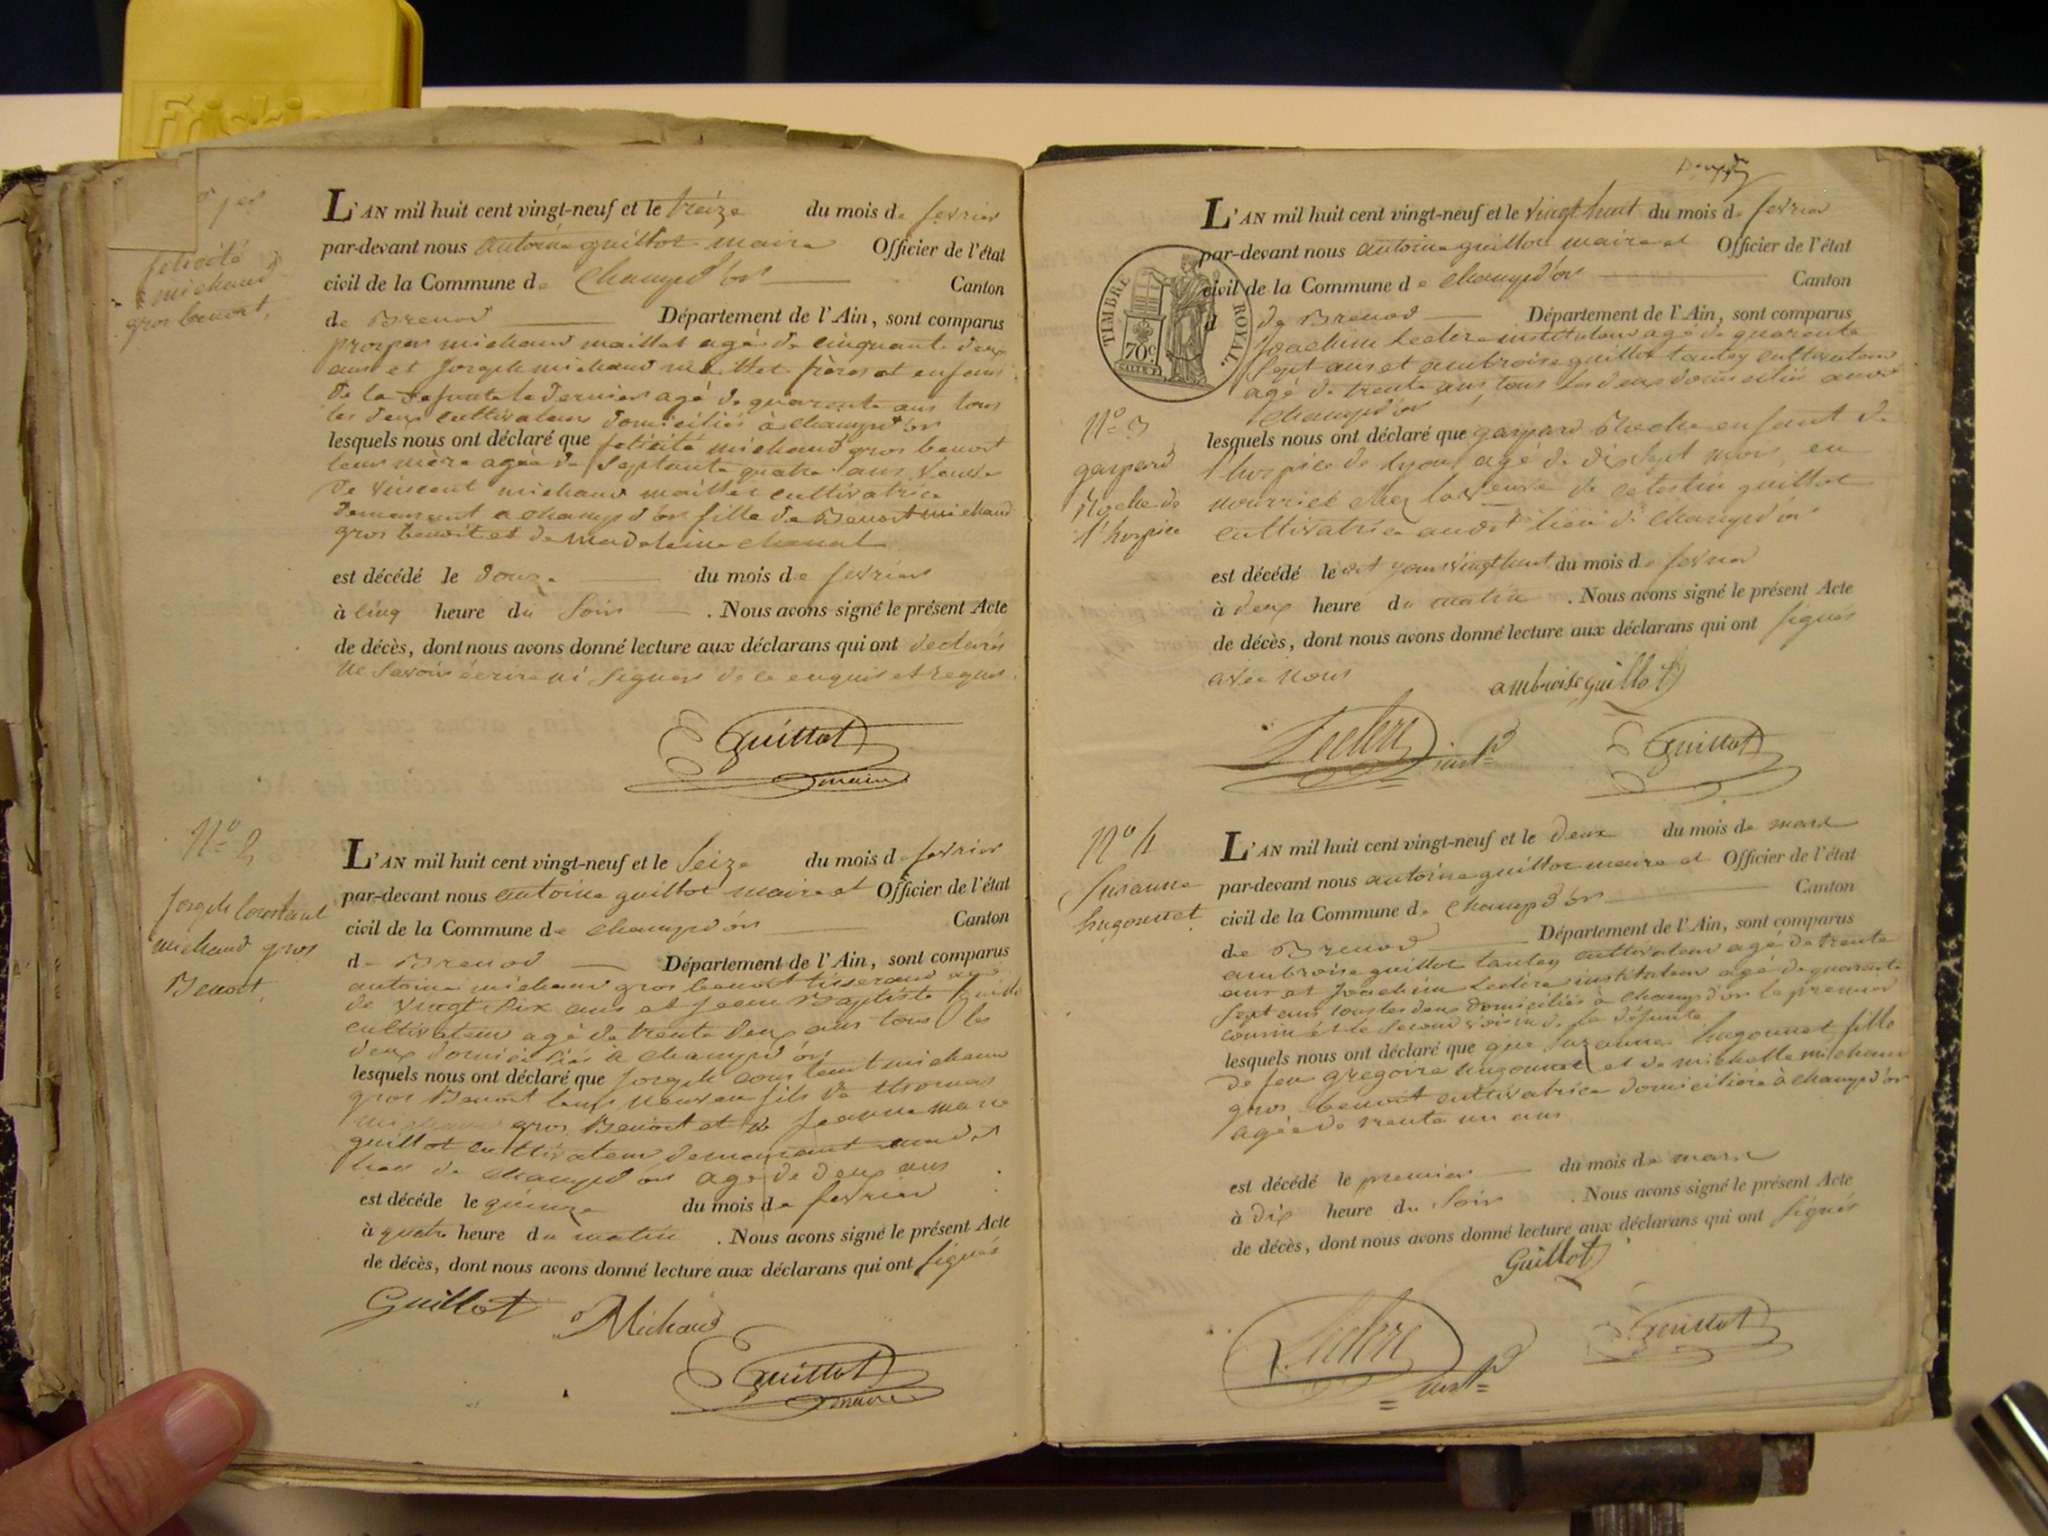 Friskies
1er
felicité
michaud
gros benoit,
L'AN mil huit cent vingt-neuf et le treize du mois de fevrier
par-devant nous antoine guillot maire Officier de l'état
civil de la Commune de Champd'or Canton
de Brenod Département de l'Ain, sont comparus
prosper michaud maillet agé de cinquante deux
ans et Joseph michaud maillet frères et enfans
de la defunte le dernier agé de quarante ans tous
les deux cultivateurs domiciliés à champd'or
lesquels nous ont déclaré que felicité michaud gros benoit
leur mère agée de septante quatre ans, veuve
de vincent michaud maillet cultivatrice
demeurant a champd'or fille de Benoit michaud
gros benoit et de madelaine
est décédé le douze du mois de fevrier
à cinq heure du soir . Nous avons signé le présent Acte
de décès, dont nous avons donné lecture aux déclarans qui ont declarés
ne savoir écrire ni signer de ce enquis et requis.
Guillot
maire
N° 2
Joseph Constant
michaud gros
Benoit,
L'AN mil huit cent vingt-neuf et le seize du mois de fevrier
par-devant nous antoine guillot maire et Officier de l'état
civil de la Commune de champd'or Canton
de Brenod Département de l'Ain, sont comparus
antoine michaud gros benoit tisserand agé
de vingt six ans et jean Baptiste
cultivateur agé de trente deux ans tous les
deux domiciliés à champd'or
lesquels nous ont déclaré que Joseph constant michaud
gros Benoit leur neveu fils de thomas
michaud gros Benoit et de Jeanne marie
guillot cultivateur demeurant audit
lieu de champd'or agé de deux ans
est décédé le quinze du mois de fevrier
à quatre heure du matin . Nous avons signé le présent Acte
de décès, dont nous avons donné lecture aux déclarans qui ont signés
Guillot Michaud
Guillot
maire
L'AN mil huit cent vingt-neuf et le vingt huit du mois de fevrier
par-devant nous antoine guillot maire et Officier de l'état
civil de la Commune de champd'or Canton
d de Brenod Département de l'Ain, sont comparus
TIMBRE ROYAL.
70c
Joachim Leclere instituteur agé de quarente
sept ans et ambroise guillot tantey cultivateur
agé de trente ans, tous les deux domiciliés audit
champd'or
N° 3
gaspard
Roche de
l'hospice
lesquels nous ont déclaré que gaspard Roche enfant de
l'hospice de Lyon, agé de dix sept mois, en
nourrice chez la veuve de celestin guillot
cultivatrice audit lieu de champd'or
est décédé le dit jour vingt huit du mois de fevrier
à deux heure du matin . Nous avons signé le présent Acte
de décès, dont nous avons donné lecture aux déclarans qui ont signés
avec nous ambroise guillot
Leclere inst= Guillot
N° 4
Suzanne
hugonnet
L'AN mil huit cent vingt-neuf et le deux du mois de mars
par-devant nous antoine guillot maire et Officier de l'état
civil de la Commune de Champd'or Canton
de Brenod Département de l'Ain, sont comparus
ambroise guillot tantey cultivateur agé de trente
ans et Joachim Leclere instituteur agé de quarente
sept ans tous les deux domiciliés à champd'or le premier
cousin et le second voisin de la défunte
lesquels nous ont déclaré que que Suzanne hugonnet fille
de feu gregoire hugonnet et de michelle michaud
gros benoit cultivatrice domiciliée à champd'or
agée de trente un ans
est décédé le premier du mois de mars
à dix heure du soir . Nous avons signé le présent Acte
de décès, dont nous avons donné lecture aux déclarans qui ont signés
Guillot
Leclere inst= Guillot